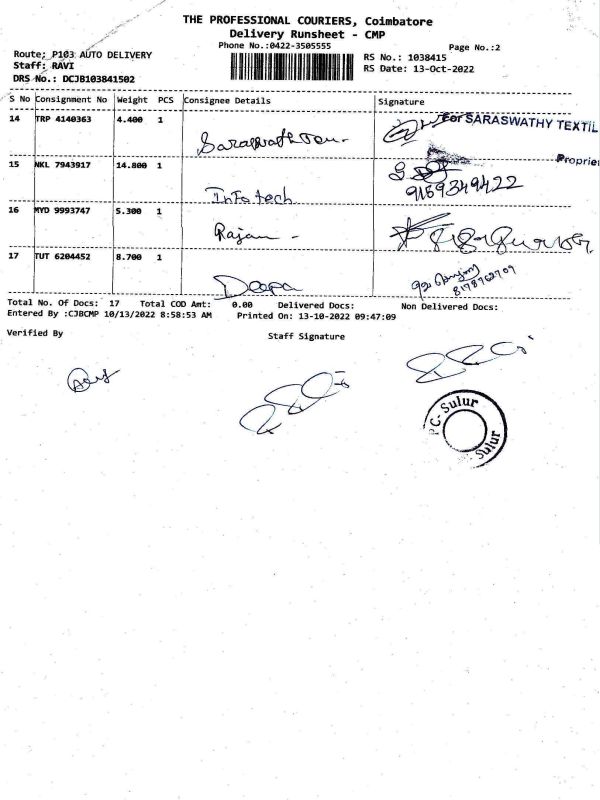 THE PROFESSIONAL COURIERS, Coimbatore
Delivery Runsheet - CMP
Phone No.:0422-3505555
Page No.:2
Route; P103 AUTO DELIVERY
Staff: RAVI
DRS No.: DCJB103841502
RS No.: 1038415
RS Date: 13-Oct-2022
S No Consignment No Weight PCS Consignee Details Signature
14 TRP 4140363 4.400 1
For SARASWATHY TEXTIL
Proprie
15 NKL 7943917 14.800 1
Infotech
9159349422
16 MYD 9993747 5.300 1
Rajan -
17 TUT 6204452 8.700 1
Deepa
8178762709
Total No. Of Docs: 17 Total COD Amt: 0.00 Delivered Docs: Non Delivered Docs:
Entered By :CJBCMP 10/13/2022 8:58:53 AM Printed On: 13-10-2022 09:47:09
Verified By Staff Signature
PC- Sulur
Sulur